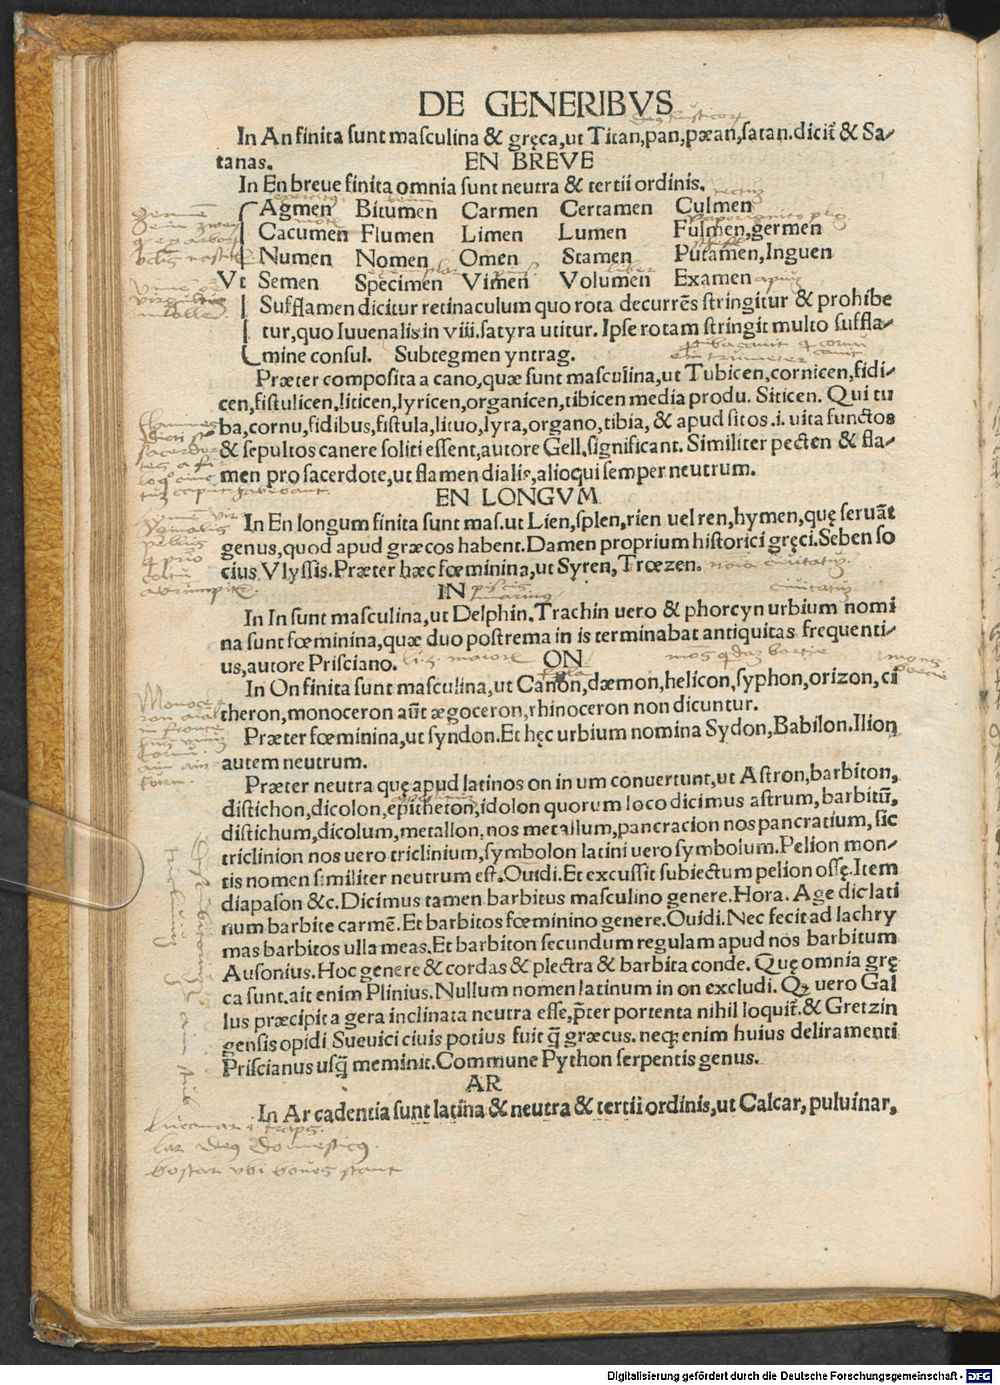 DE GENERIBVS
In An finita sunt masculina & gręca, ut Titan, pan, pæan, satan. dicit̃ & Sa-
tanas. EN BREVE
In En breue finita omnia sunt neutra & tertii ordinis.
Agmen Bitumen Carmen Certamen Culmen
Cacumen Flumen Limen Lumen Fulmen, germen
Numen Nomen Omen Stamen Putamen, Inguen
Vt Semen Specimen Vimen Volumen Examen
exemplar
liber
apium
Sufflamen dicitur retinaculum quo rota decurrẽs stringitur & prohibe
tur, quo Iuuenalis in viii. satyra utitur. Ipse rotam stringit multo suffla-
mine consul. Subtegmen yntrag.
Præter composita a cano, quæ sunt masculina, ut Tubicen, cornicen, fidi-
cen, fistulicen, liticen, lyricen, organicen, tibicen media produ. Siticen. Qui tu
ba, cornu, fidibus, fistula, lituo, lyra, organo, tibia, & apud sitos .i. uita functos
& sepultos canere soliti essent, autore Gell. significant. Similiter pecten & fla-
men pro sacerdote, ut flamen dialis, alioqui semper neutrum.
EN LONGVM
In En longum finita sunt mas. ut Lien, splen, rien uel ren, hymen, quę seruãt
genus, quod apud græcos habent. Damen proprium historici gręci. Seben so
cius Vlyssis. Præter hæc fœminina, ut Syren, Trœzen. noĩa ciuitatum.
IN piscis marinus
ciuitatum
In In sunt masculina, ut Delphin. Trachin uero & phorcyn urbium nomi
na sunt fœminina, quæ duo postrema in is terminabat antiquitas frequenti-
us, autore Prisciano. ON
In On finita sunt masculina, ut Canon, dæmon, helicon, syphon, orizon, ci
theron, monoceron aũt ægoceron, rhinoceron non dicuntur.
Præter fœminina, ut syndon. Et hęc urbium nomina Sydon, Babilon. Ilion
autem neutrum.
Præter neutra quę apud latinos on in um conuertunt, ut Astron, barbiton,
distichon, dicolon, epitheton, idolon quorum loco dicimus astrum, barbitũ,
distichum, dicolum, metallon, nos metallum, pancracion nos pancratium, sic
triclinion nos uero triclinium, symbolon latini uero symbolum. Pelion mon-
tis nomen similiter neutrum est. Ouidi. Et excussit subiectum pelion ossę. Item
diapason &c. Dicimus tamen barbitus masculino genere. Hora. Age dic lati
num barbite carmẽ. Et barbitos fœminino genere. Ouidi. Nec fecit ad lachry
mas barbitos ulla meas. Et barbiton secundum regulam apud nos barbitum
Ausonius. Hoc genere & cordas & plectra & barbita conde. Quę omnia grę
ca sunt. ait enim Plinius. Nullum nomen latinum in on excludi. Qꝫ uero Gal
lus præcipit a gera inclinata neutra esse, p̃ter portenta nihil loquit̃. & Gretzin
gensis opidi Sueuici ciuis potius fuit q̃ græcus. neqꝫ enim huius deliramenti
Priscianus usq̃ meminit. Commune Python serpentis genus.
AR
In Ar cadentia sunt latina & neutra & tertii ordinis, ut Calcar, puluinar,
lar deus domesticus.
bostar vbi boues stant
Digitalisierung gefördert durch die Deutsche Forschungsgemeinschaft - DFG